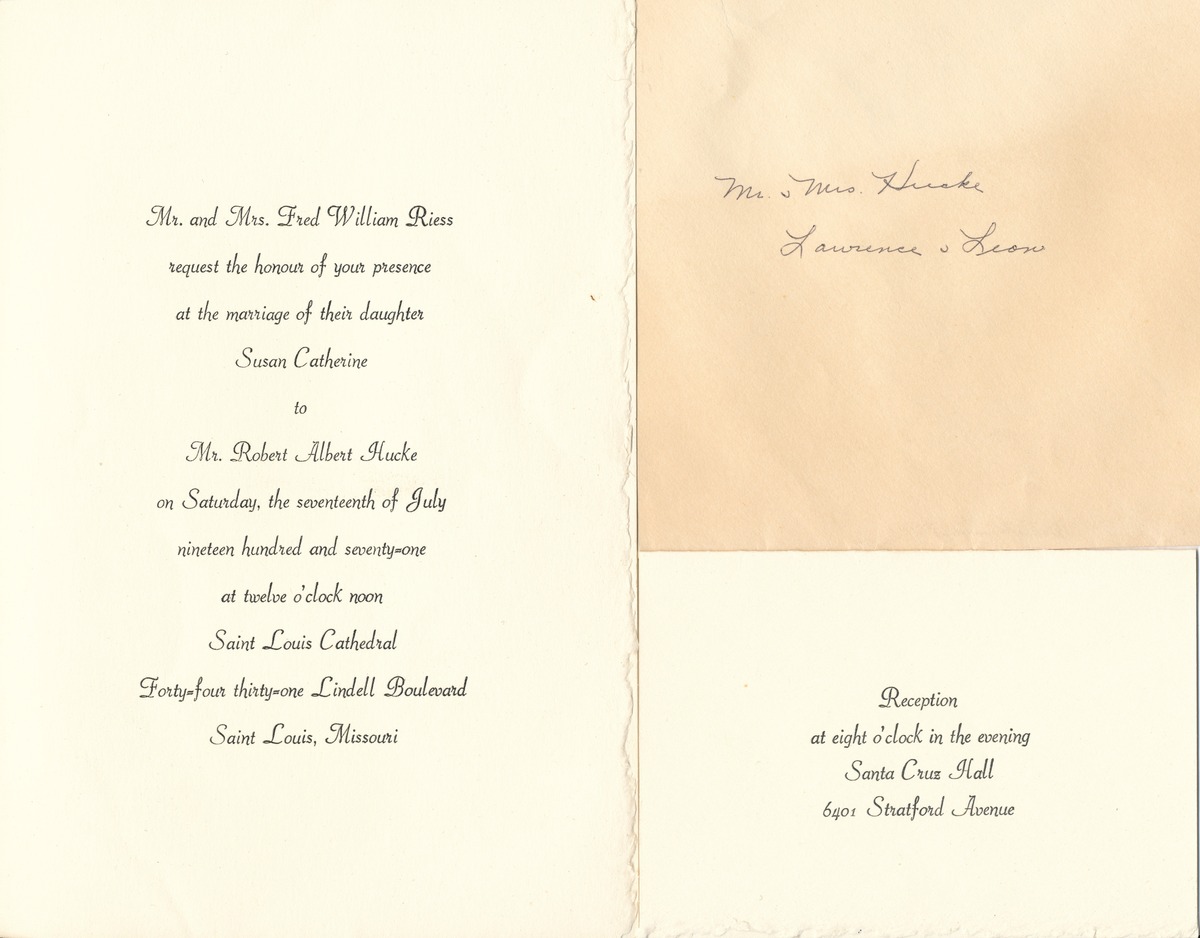 Mr. and Mrs. Fred William Riess
request the honour of your presence
at the marriage of their daughter
Susan Catherine
to
Mr. Robert Albert Hucke
on Saturday, the seventeenth of July
nineteen hundred and seventy=one
at twelve o'clock noon
Saint Louis Cathedral
Forty=four thirty=one Lindell Boulevard
Saint Louis, Missouri
Mr. & Mrs. Hucke
Lawrence & Leon
Reception
at eight o'clock in the evening
Santa Cruz Hall
6401 Stratford Avenue